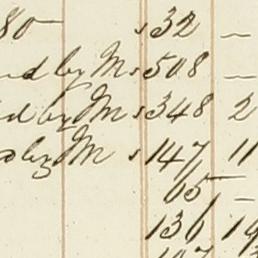 80 " 32 —
d by M " 508 —
d by M " 348 2
by M " 147 11
65 —
136 19